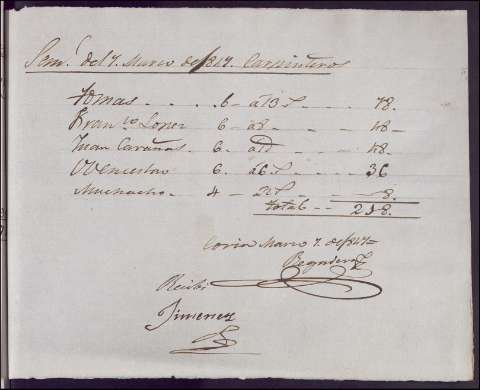 Semª del 7. Marzo de 1817. Carpinteros
Tomas . . . . 6 - a 13 r - - - 78.
Franco Lopez 6 - a 8 - . - - 48 -
Juan . 6 . - . - - 48.
Wenceslao 6. a 6 r - - - 36
Muchacho . 4 - 2 r - - - 8.
total - - 218.
Coria Marzo 7. de 1817 =
Recibi
Jimenez